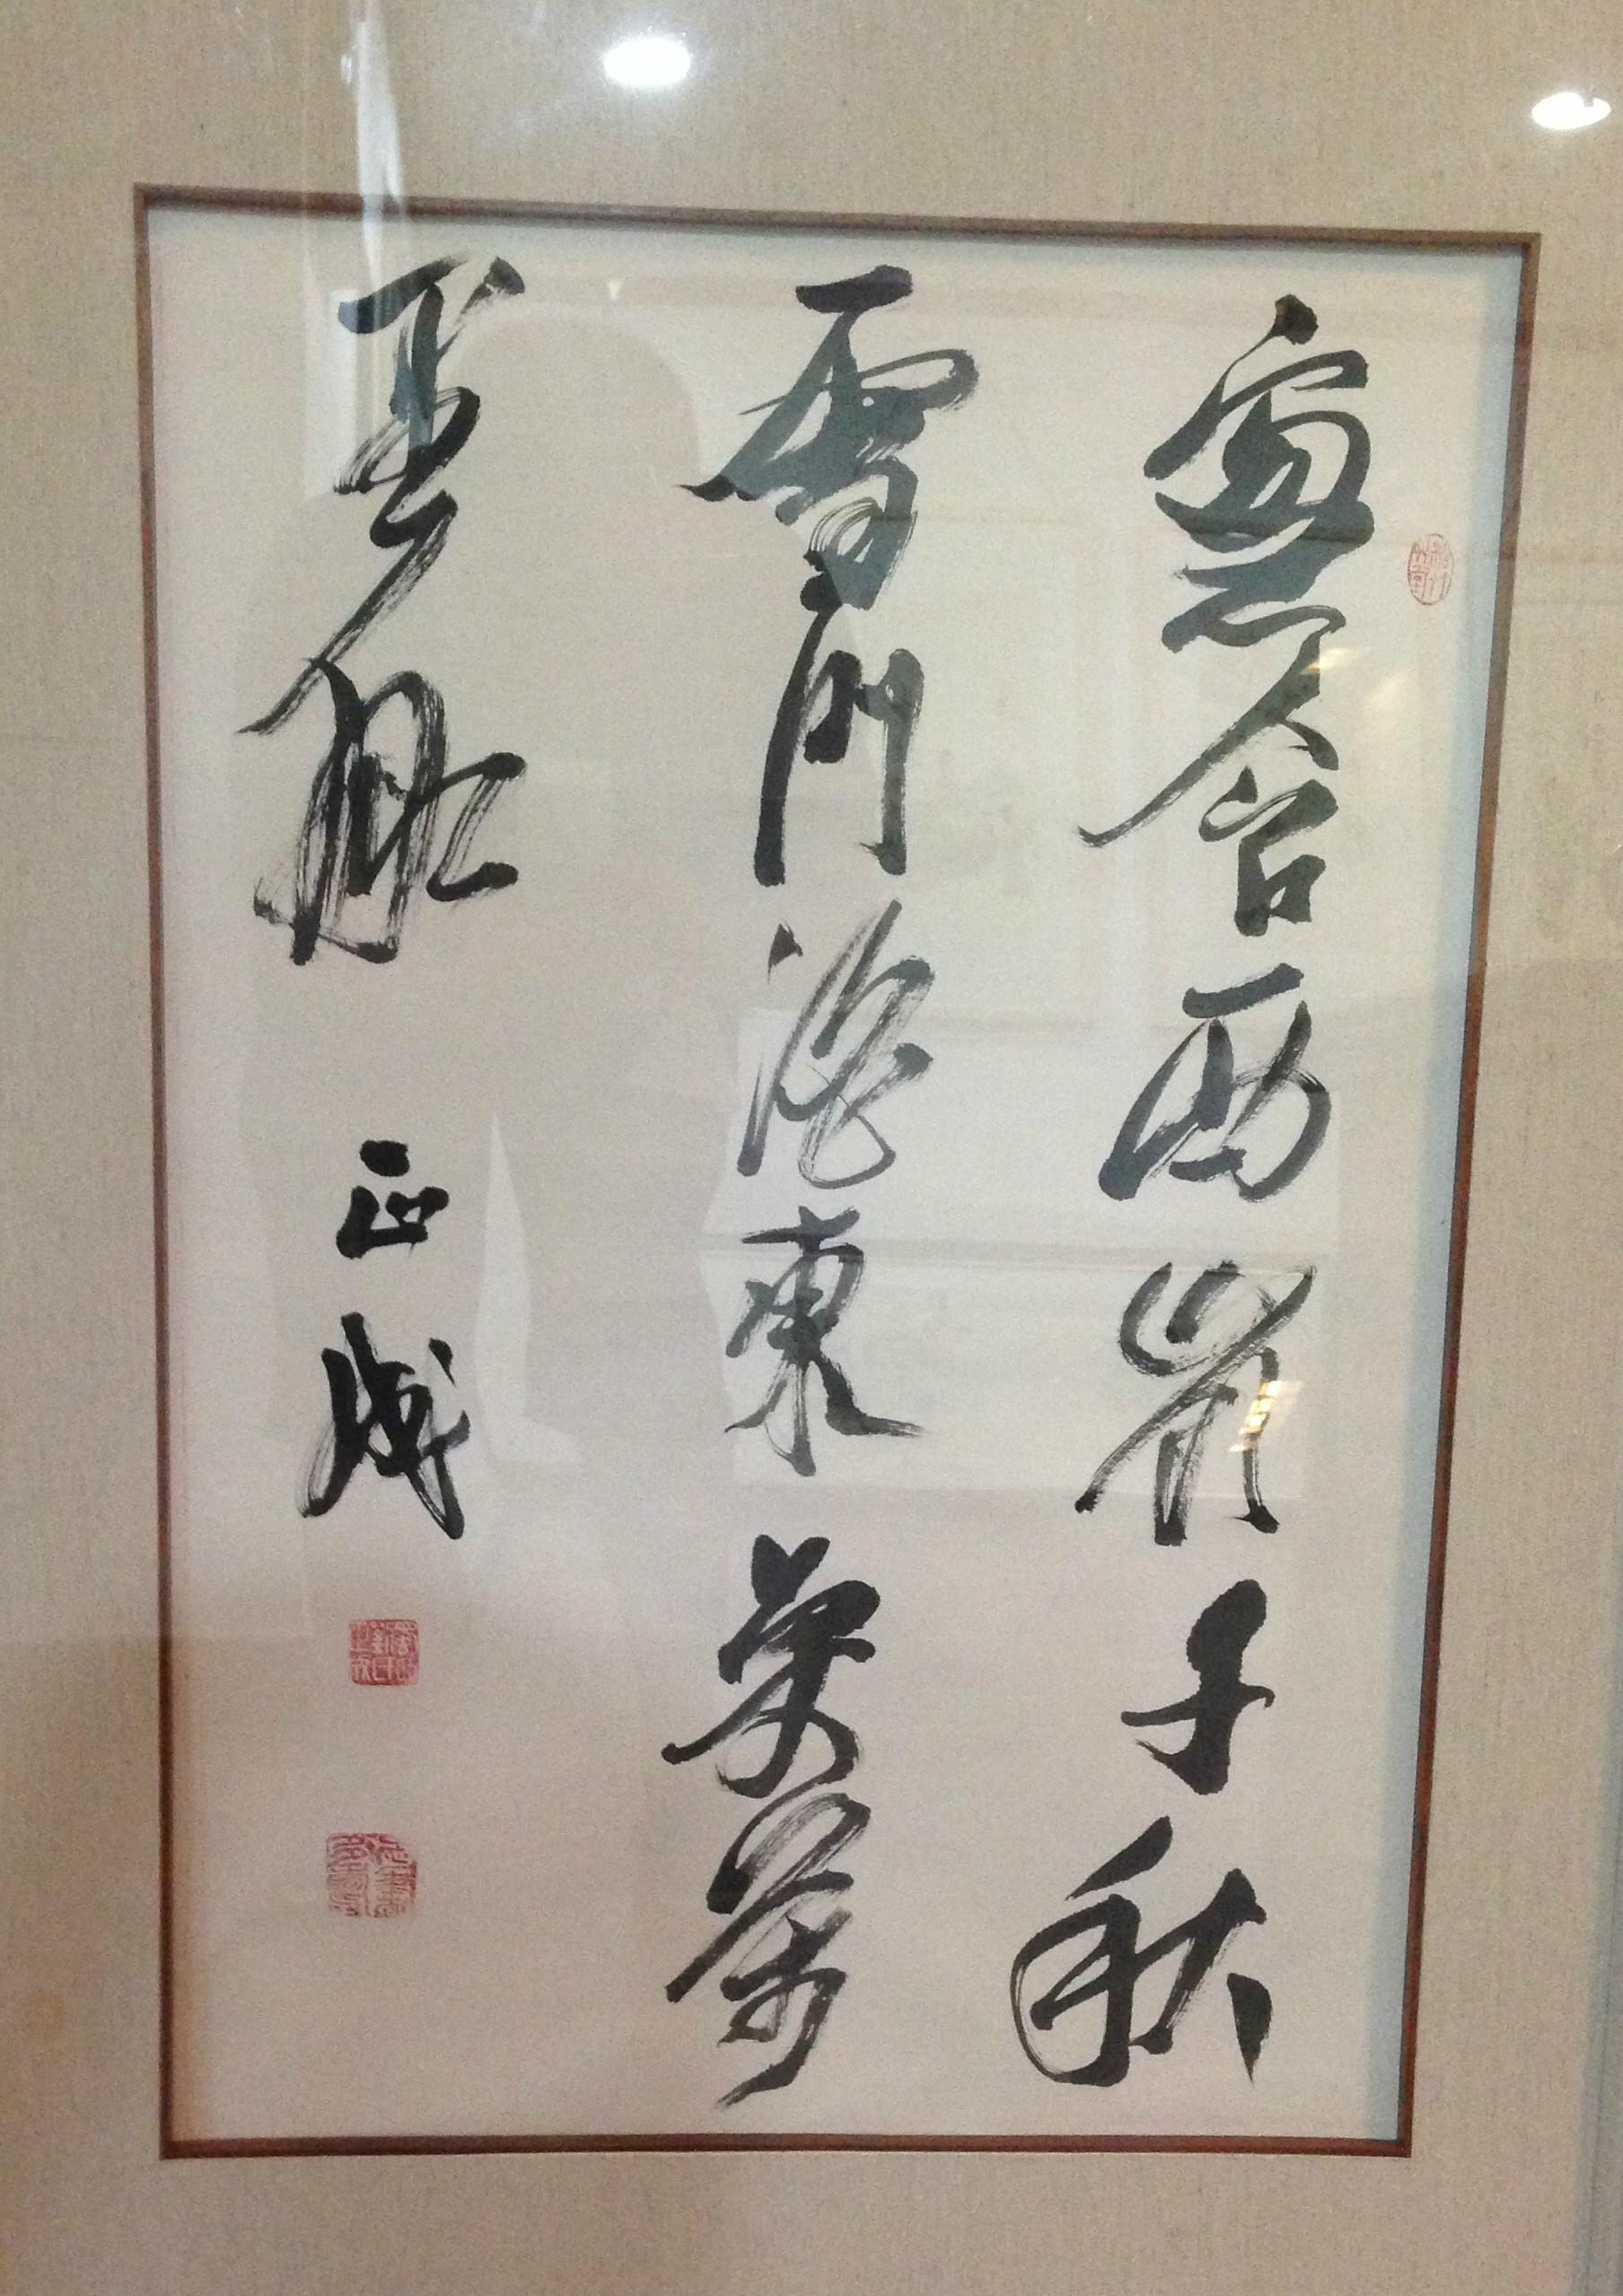 窗含西嶺千秋
雪門泊東吳萬
里船 正成